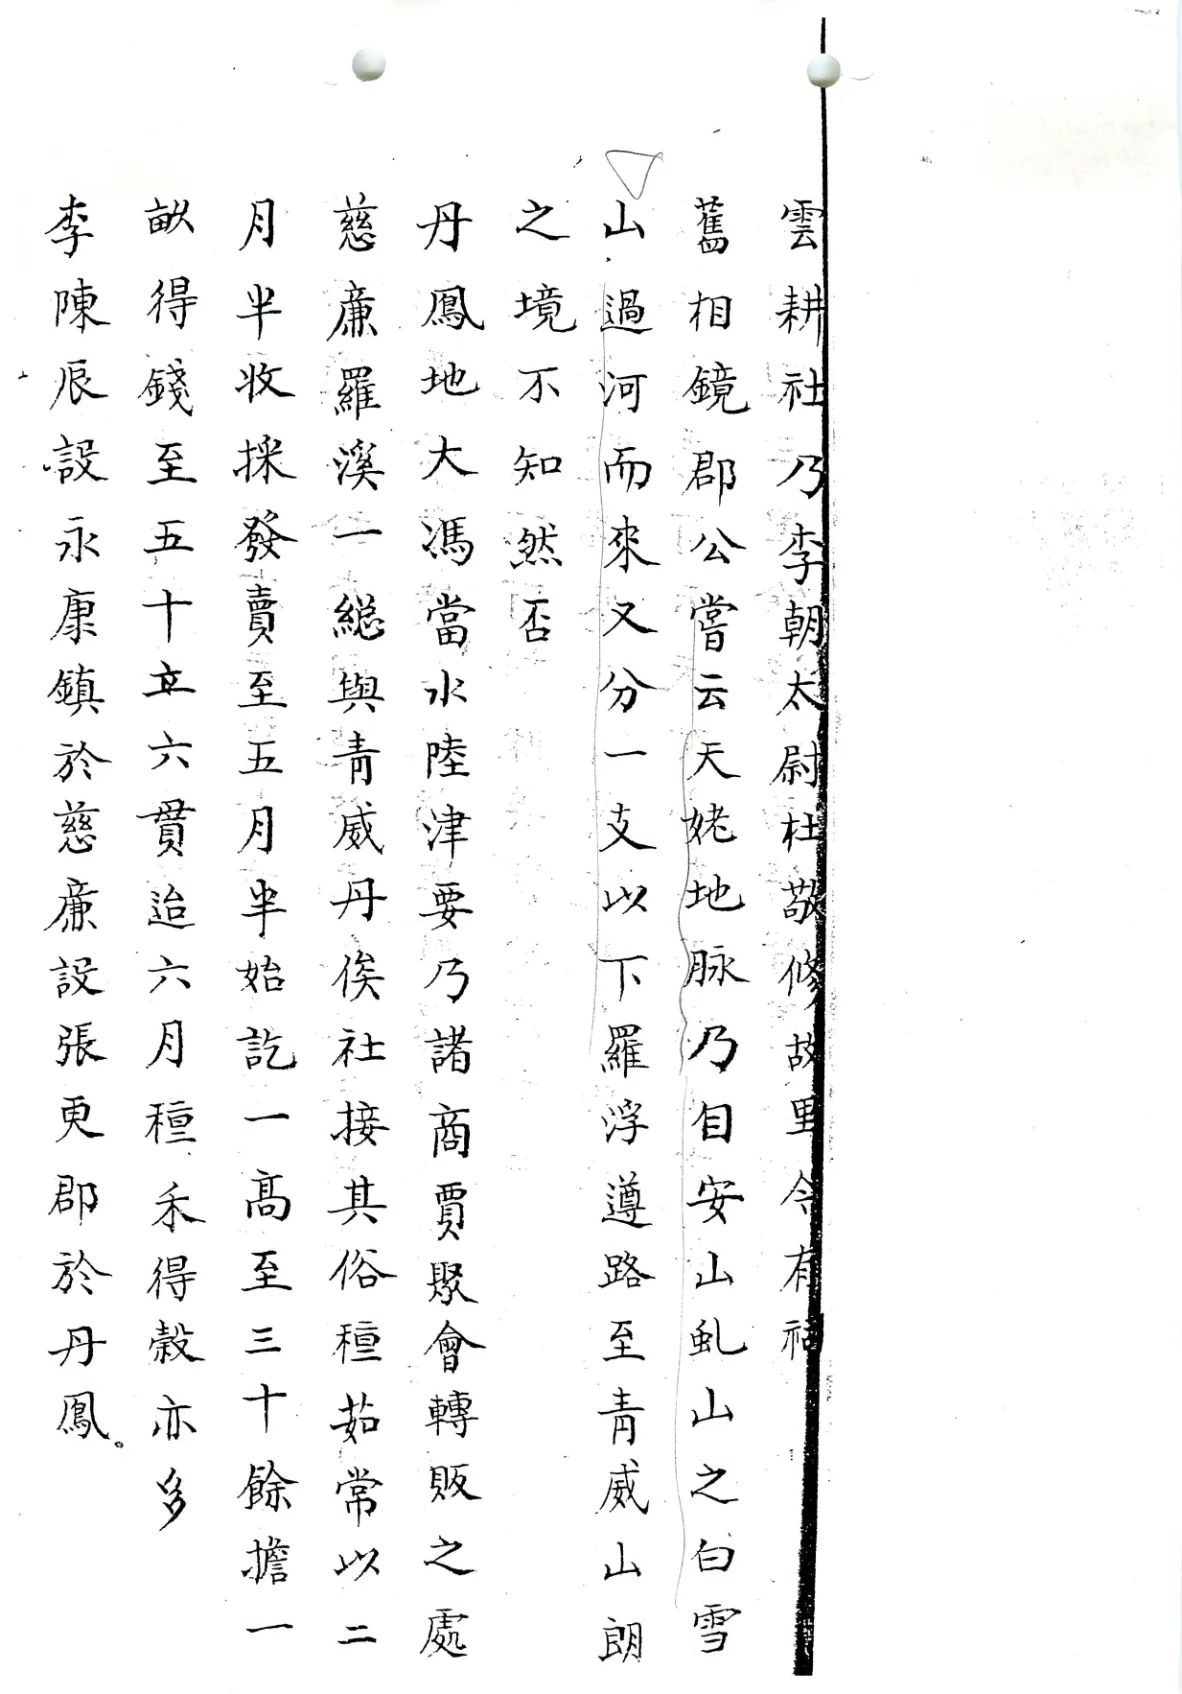 雲耕社乃李朝太尉杜敬修故里今有祠
舊相鏡郡公嘗云天姥地脉乃自安山虬山之白雪
山過河而來又分一支以下羅浮遵路至青威山朗
之境不知然否
丹鳳地大馮當水陸津要乃諸商賈聚會轉販之處
慈廉羅溪一總與青威丹俟社接其俗種茹常以二
月半收採發賣至五月半始訖一高至三十餘擔一
畝得錢至五十五六貫迨六月種禾得穀亦多
李陳辰設永康鎮於慈廉設張更郡於丹鳳。